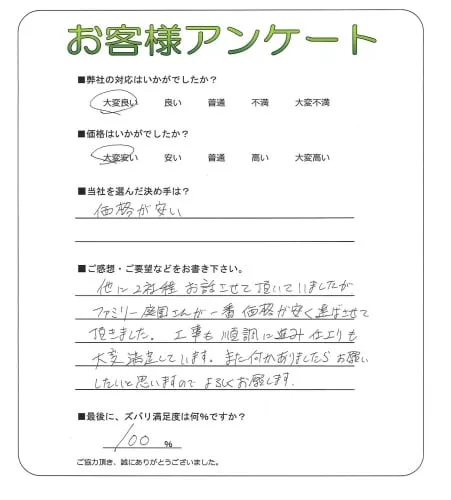 お客様アンケート
■弊社の対応はいかがでしたか?
大変良い 良い 普通 不満 大変不満
■価格はいかがでしたか?
大変安い 安い 普通 高い 大変高い
■当社を選んだ決め手は?
価格が安い
■ご感想・ご要望などをお書き下さい。
他に2社程 お話させて頂いていましたが
ファミリー庭園さんが一番 価格が安く選ばさせて
頂きました。 工事も順調に進み仕上りも
大変満足しています。また何かありましたらお願い
したいと思いますので よろしくお願します.
■最後に、ズバリ満足度は何%ですか?
100 %
ご協力頂き、誠にありがとうございました。